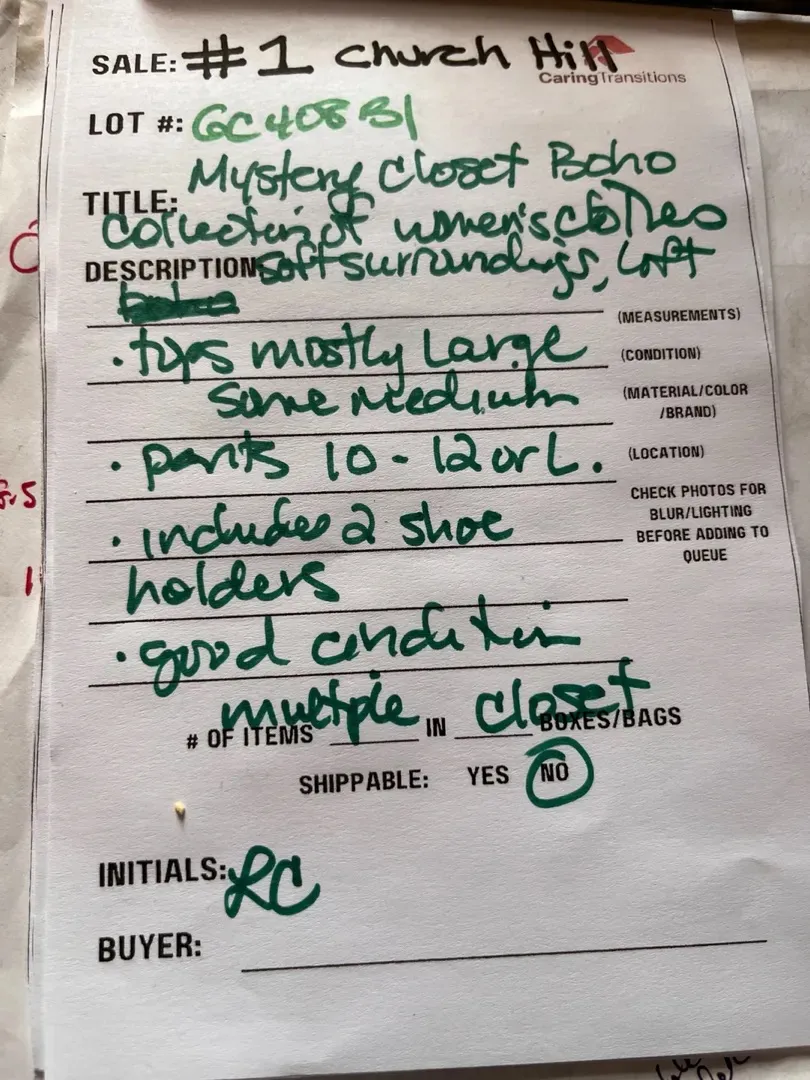 SALE: #1 Church Hill
CaringTransitions
LOT #: GC408B1
Mystery Closet Boho
TITLE:
Collection of women's clothes
DESCRIPTION Soft surroundings, Loft
(MEASUREMENTS)
· tops mostly Large
(CONDITION)
some medium
(MATERIAL/COLOR
/BRAND)
· pants 10-12 or L.
(LOCATION)
CHECK PHOTOS FOR
BLUR/LIGHTING
BEFORE ADDING TO
QUEUE
· includes 2 shoe
holders
· good condition
# OF ITEMS multiple IN closet BOXES/BAGS
SHIPPABLE: YES NO
INITIALS: RC
BUYER: